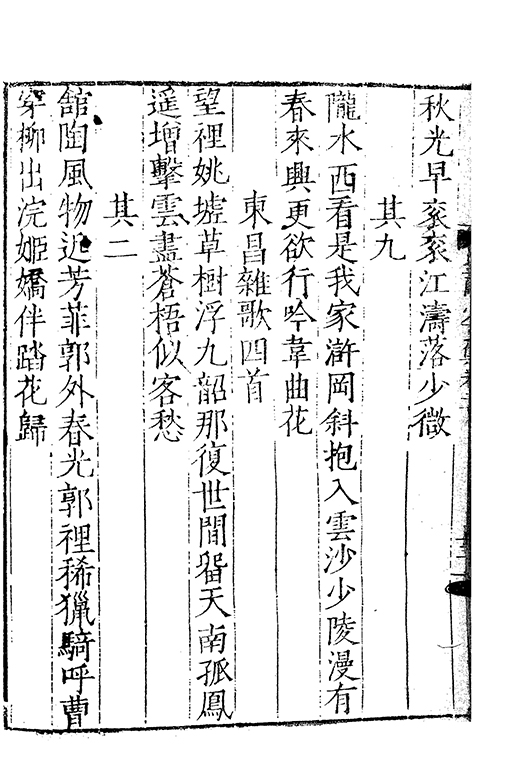 秋光早衮衮江濤落少微
其九
隴水西看是我家滸岡斜抱入雲沙少陵漫有
春來興更欲行吟韋曲花
東昌雜歌四首
望裡姚墟草樹浮九韶那復世間畱天南孤鳳
遥增擊雲盡蒼梧似客愁
其二
舘陶風物近芳菲郭外春光郭裡稀獵騎呼曹
穿柳出浣姬嬌伴踏花歸